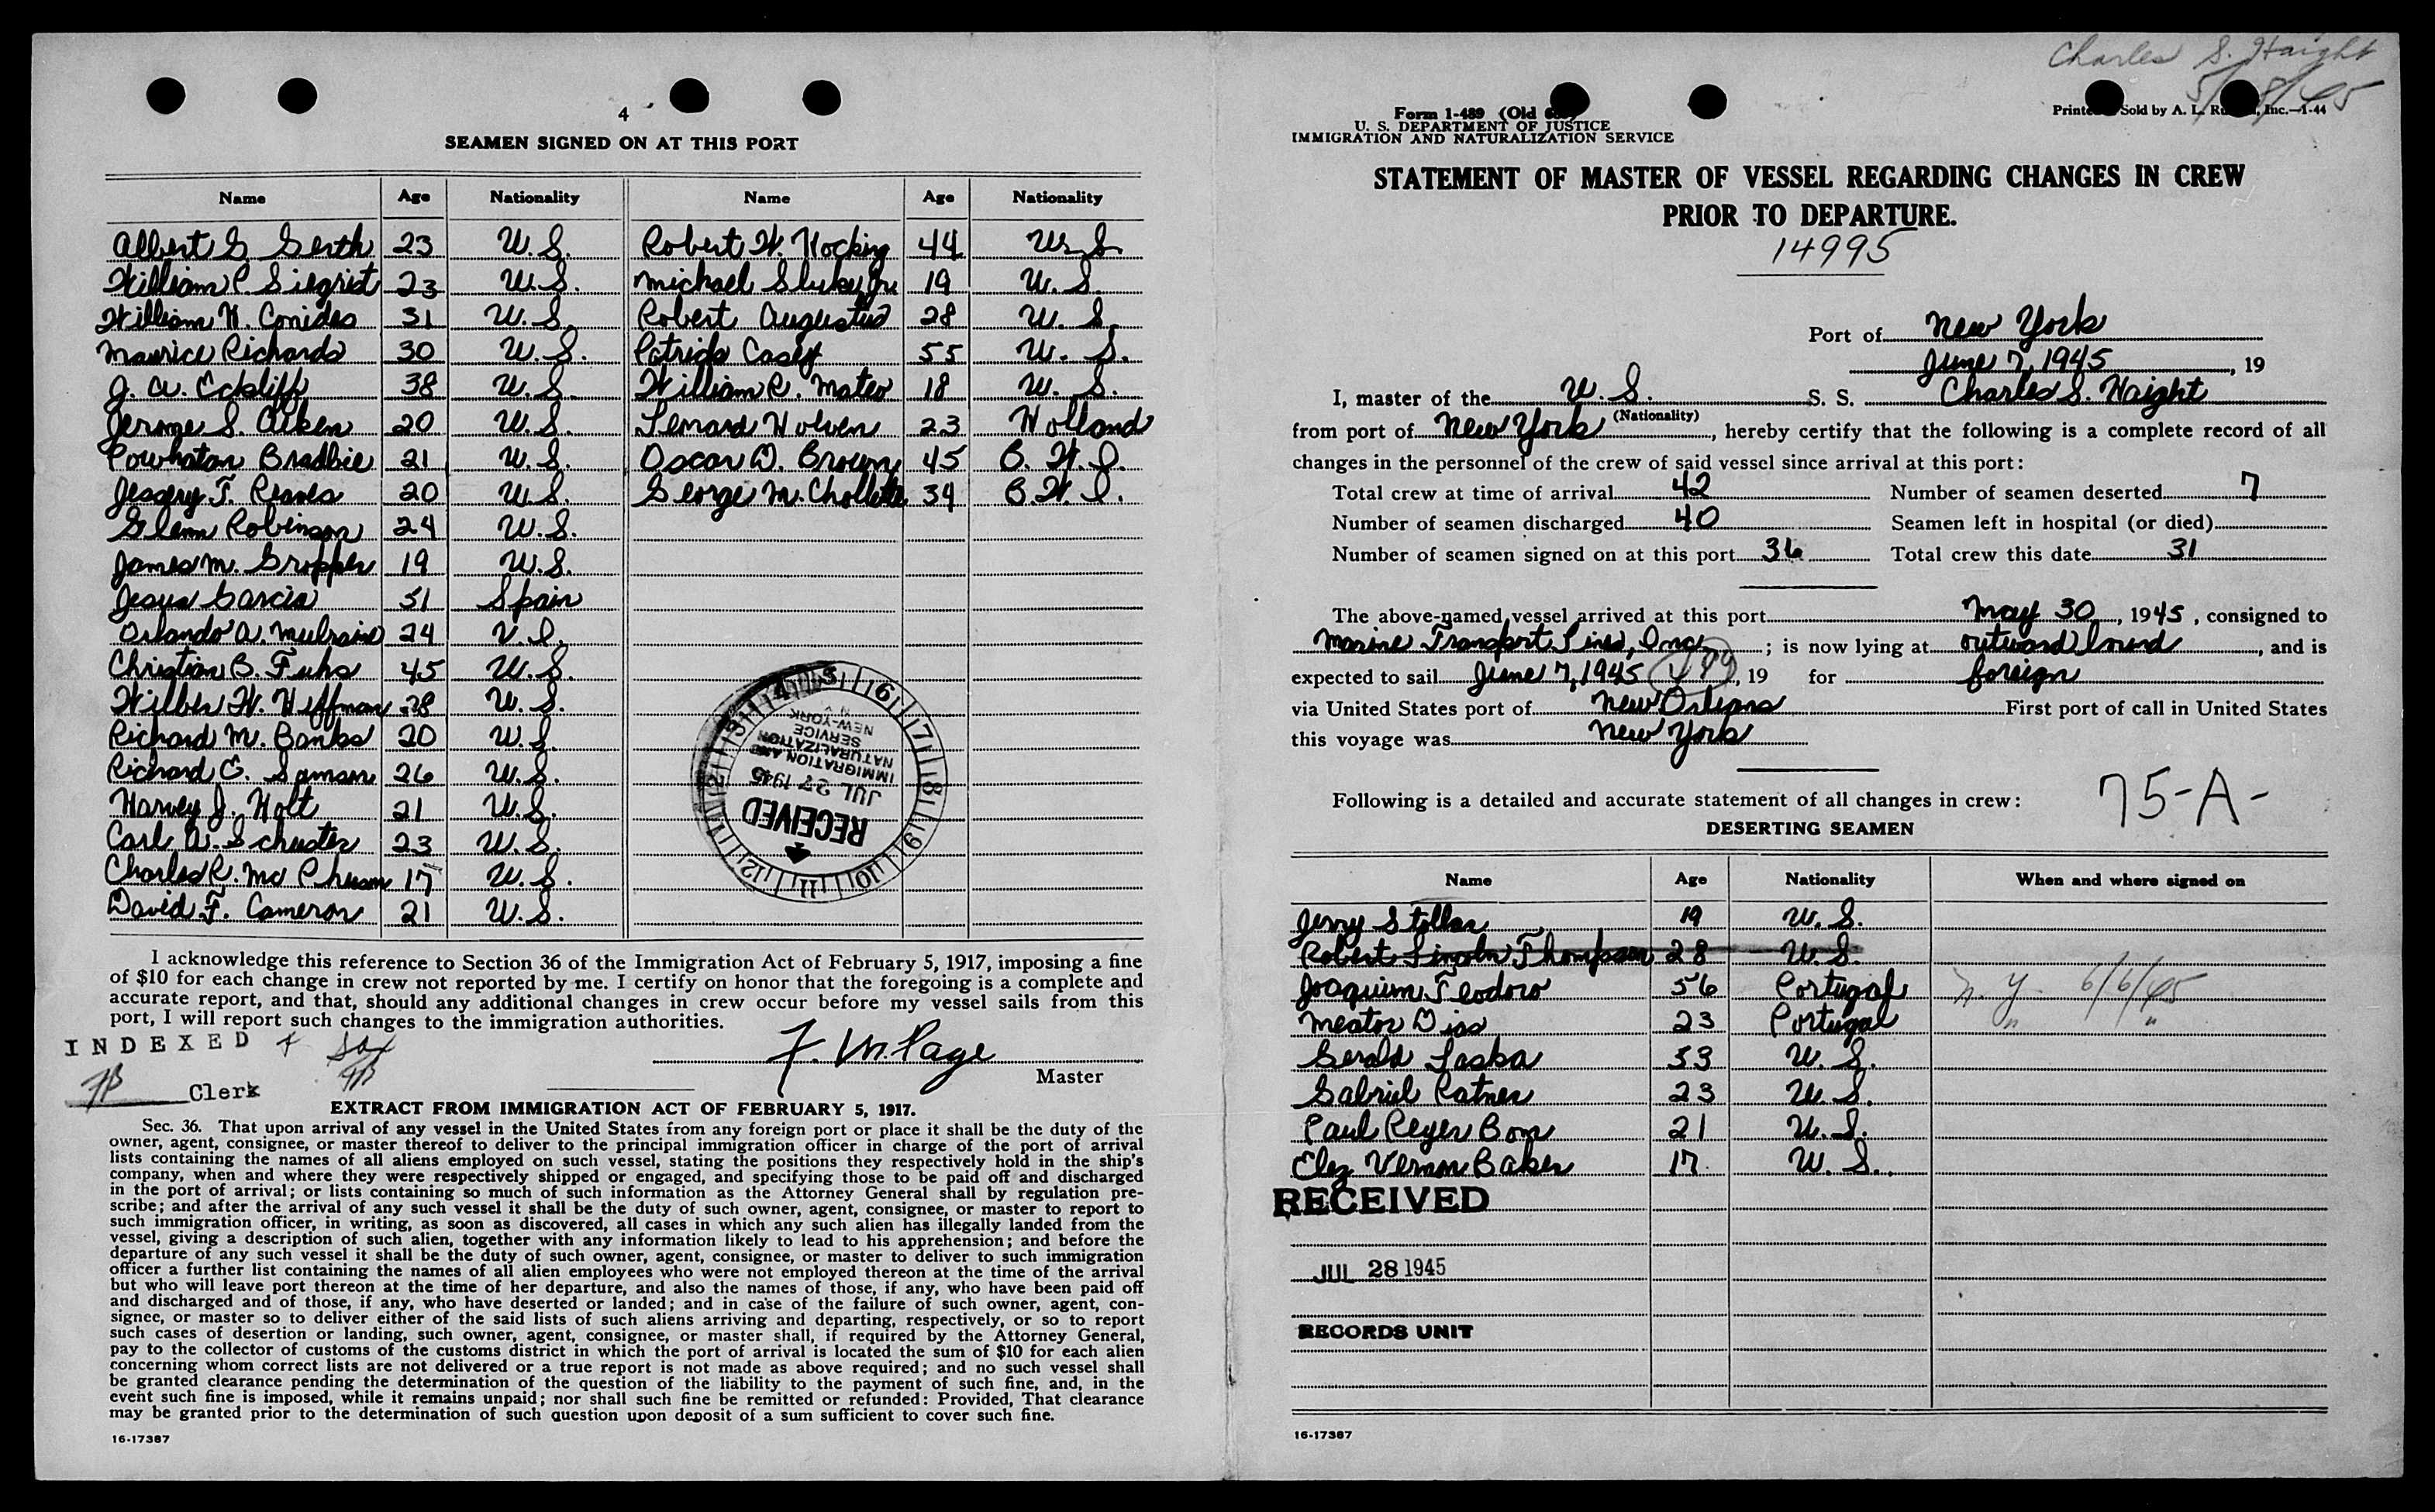 4
SEAMEN SIGNED ON AT THIS PORT
Name Age Nationality Name Age Nationality
Albert G. Gerth 23 U.S. Robert W. Hocking 44 U.S.
William P. Siegrist 23 U.S. Michael Jr. 19 U.S.
William H. Conides 31 U.S. Robert Augustus 28 U.S.
Maurice Richards 30 U.S. Patrick Casey 55 U.S.
J. A. Eckliff 38 U.S. William R. Mateo 18 U.S.
Jerome S. Aiken 20 U.S. Lenard Holven 23 Holland
Powhatan Bradbie 21 U.S. Oscar D. Brown 45 B.W.I.
T. Reaves 20 U.S. George M. Chollette 34 B.W.I.
Glenn Robinson 24 U.S.
James M. Gropper 19 U.S.
Jesus Garcia 51 Spain
Orlando A. Mulraine 24 V.I.
Christian B. Fuhs 45 U.S.
Wilber W. Hiffman 28 U.S.
Richard M. Banks 20 U.S.
Richard G. Samson 26 U.S.
Harvey J. Holt 21 U.S.
Carl A. Schuster 23 U.S.
Charles R. 17 U.S.
David F. Cameron 21 U.S.
RECEIVED
JUL 27 1945
IMMIGRATION AND
NATURALIZATION
SERVICE
NEW-YORK
I acknowledge this reference to Section 36 of the Immigration Act of February 5, 1917, imposing a fine
of $10 for each change in crew not reported by me. I certify on honor that the foregoing is a complete and
accurate report, and that, should any additional changes in crew occur before my vessel sails from this
port, I will report such changes to the immigration authorities.
INDEXED
F. M. Page
Master
Clerk
EXTRACT FROM IMMIGRATION ACT OF FEBRUARY 5, 1917.
Sec. 36. That upon arrival of any vessel in the United States from any foreign port or place it shall be the duty of the
owner, agent, consignee, or master thereof to deliver to the principal immigration officer in charge of the port of arrival
lists containing the names of all aliens employed on such vessel, stating the positions they respectively hold in the ship's
company, when and where they were respectively shipped or engaged, and specifying those to be paid off and discharged
in the port of arrival; or lists containing so much of such information as the Attorney General shall by regulation pre-
scribe; and after the arrival of any such vessel it shall be the duty of such owner, agent, consignee, or master to report to
such immigration officer, in writing, as soon as discovered, all cases in which any such alien has illegally landed from the
vessel, giving a description of such alien, together with any information likely to lead to his apprehension; and before the
departure of any such vessel it shall be the duty of such owner, agent, consignee, or master to deliver to such immigration
officer a further list containing the names of all alien employees who were not employed thereon at the time of the arrival
but who will leave port thereon at the time of her departure, and also the names of those, if any, who have been paid off
and discharged and of those, if any, who have deserted or landed; and in case of the failure of such owner, agent, con-
signee, or master so to deliver either of the said lists of such aliens arriving and departing, respectively, or so to report
such cases of desertion or landing, such owner, agent, consignee, or master shall, if required by the Attorney General,
pay to the collector of customs of the customs district in which the port of arrival is located the sum of $10 for each alien
concerning whom correct lists are not delivered or a true report is not made as above required; and no such vessel shall
be granted clearance pending the determination of the question of the liability to the payment of such fine, and, in the
event such fine is imposed, while it remains unpaid; nor shall such fine be remitted or refunded: Provided, That clearance
may be granted prior to the determination of such question upon deposit of a sum sufficient to cover such fine.
16-17387
Charles S. Haight
Form 1-489 (Old
U. S. DEPARTMENT OF JUSTICE
IMMIGRATION AND NATURALIZATION SERVICE
Sold by A. L. Inc.—1-44
STATEMENT OF MASTER OF VESSEL REGARDING CHANGES IN CREW
PRIOR TO DEPARTURE.
14995
Port of New York
June 7, 1945, 19
I, master of the U.S. S. S. Charles S. Haight
(Nationality)
from port of New York, hereby certify that the following is a complete record of all
changes in the personnel of the crew of said vessel since arrival at this port:
Total crew at time of arrival 42 Number of seamen deserted 7
Number of seamen discharged 40 Seamen left in hospital (or died)
Number of seamen signed on at this port 36 Total crew this date 31
The above-named vessel arrived at this port May 30, 1945, consigned to
Marine Transport Lines, Inc.; is now lying at outward bound, and is
expected to sail June 7, 1945 (489), 19 for foreign
via United States port of New Orleans First port of call in United States
this voyage was New York
Following is a detailed and accurate statement of all changes in crew: 75-A-
DESERTING SEAMEN
Name Age Nationality When and where signed on
Jerry Stiller 19 U.S.
Robert Lincoln Thompson 28 U.S.
Joaquim Teodoro 56 Portugal N.Y. 6/6/45
Meator Dias 23 Portugal " "
Gerald Laska 53 U.S.
Gabriel Ratner 23 U.S.
Paul Reyer Bom 21 U.S.
Vernon Baker 17 U.S.
RECEIVED
JUL 28 1945
RECORDS UNIT
16-17387